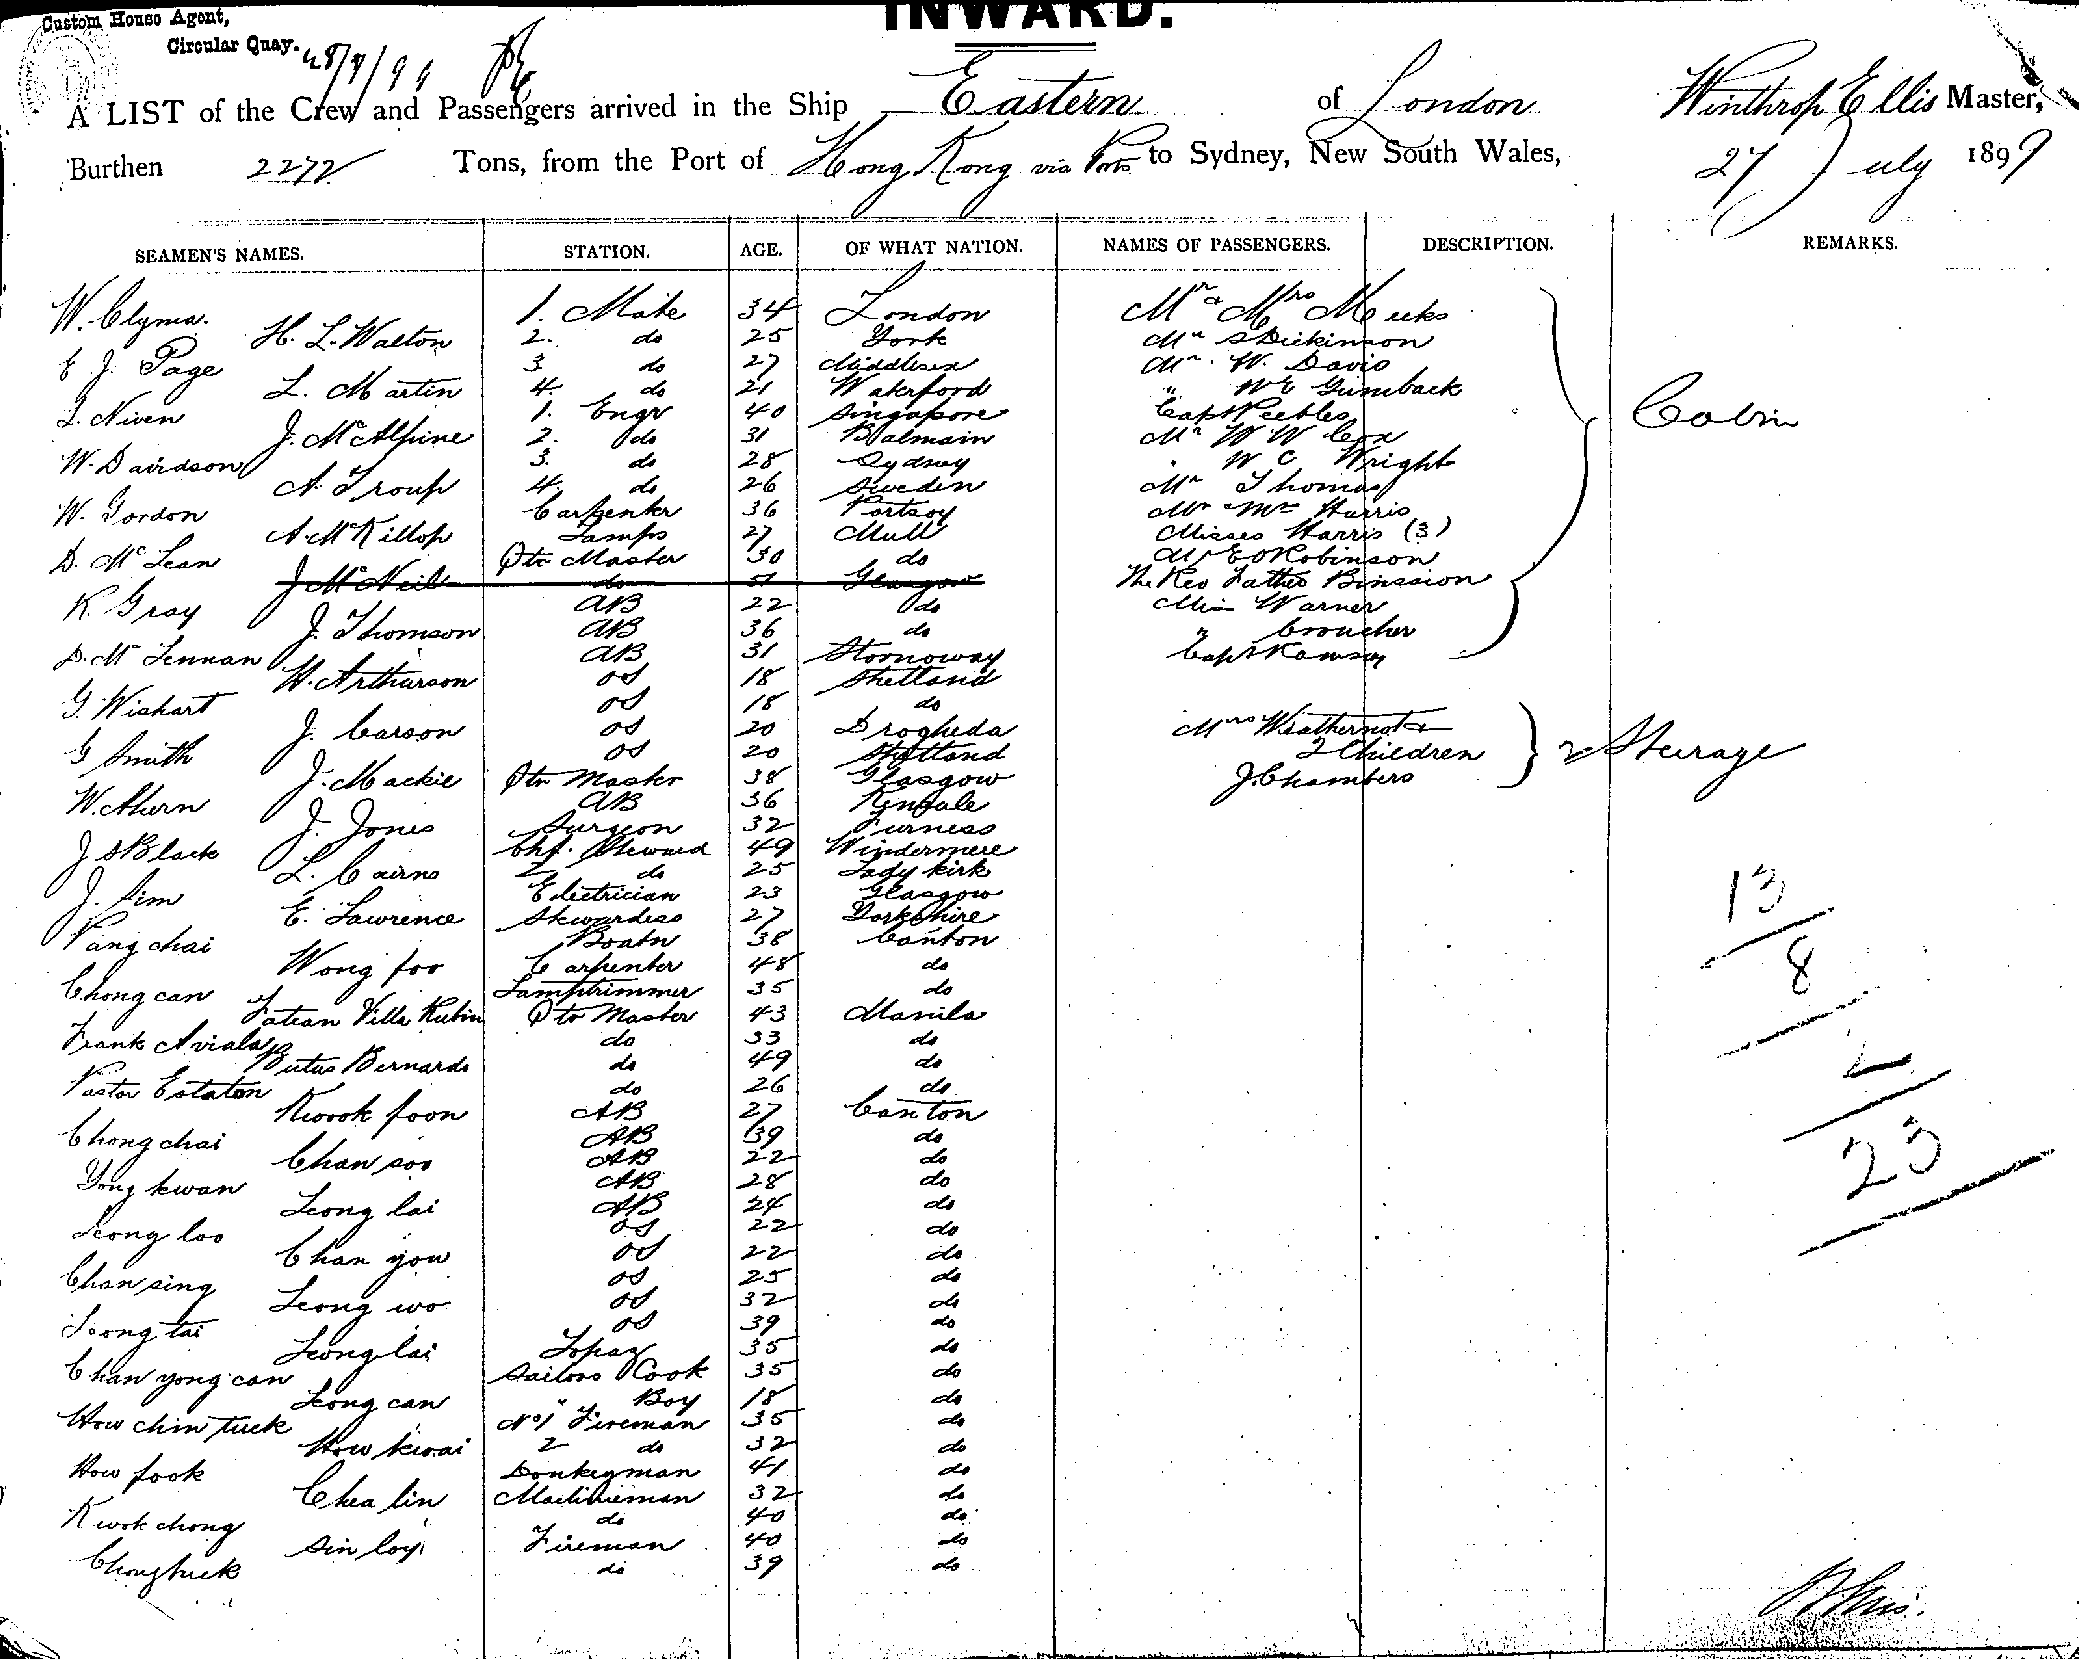 INWARD.
Custom House Agent,
Circular Quay.
28/7/99
A LIST of the Crew and Passengers arrived in the Ship Eastern of London Winthrop Ellis Master,
Burthen 2272 Tons, from the Port of Hong Kong via Ports to Sydney, New South Wales, 27 July 1899
SEAMEN'S NAMES. STATION. AGE. OF WHAT NATION. NAMES OF PASSENGERS. DESCRIPTION. REMARKS.
W. Clyma. 1. Mate 34 London Mr & Mrs Meeks
H. L. Walton 2. do 25 York Mr Dickinson
E J. Page 3 do 27 Middlesex Mr. W. Davis
L. Martin 4. do 21 Waterford " Gumback
Niven 1. Engr 40 Singapore Capt Peebles
J. McAlpine 2. do 31 Balmain Mr W W Cox
W. Davidson 3. do 28 Sydney " W C Wright
A. Troup 4. do 26 Sweden Mr Thomas
W. Gordon Carpenter 36 Portsoy Mr & Mrs Harris
A McKillop Lamps 27 Mull Misses Harris (3)
D. McLean Qtr Master 30 do Robinson
J McNeil do Glasgow The Rev Father
K. Gray AB 22 do Miss Warner
J. Thomson AB 36 do " Croucher
D. McLennan AB 31 Stornoway Capt Ramsay
W. Artharson OS 18 Shetland
G. Wishart OS 18 do
J. Carson OS 20 Drogheda Mrs
G Smith OS 20 Shetland 2 Children
J. Mackie Qtr Master 38 Glasgow J. Chambers
W. Ahern AB 36 Kinsale
J. Jones Surgeon 32 Furness
J S Black Chf. Steward 49 Windermere
L. Cairns 2 do 25 Ladykirk
J. Sim Electrician 23 Glasgow
E. Lawrence Stewardess 27 Yorkshire
Pang chai Boatn 38 Canton
Wong foo Carpenter 48 do
Chong can Lamptrimmer 35 do
Villa Rubin Qtr Master 43 Manila
Frank Aviala do 33 do
Bernardo do 49 do
Pastor Estaton do 26 do
Kwok foon AB 27 Canton
Chong chai AB 39 do
Chan soo AB 22 do
Yong kwan AB 28 do
Leong lai AB 24 do
Leong loo OS 22 do
Chan you OS 22 do
Chan sing OS 25 do
Leong wo OS 32 do
Leong tai OS 39 do
Leong lai Topaz 35 do
Chan yong can Sailors Cook 35 do
Leong can " Boy 18 do
How chin tuck No 1 Fireman 35 do
How kwai 2 do 32 do
How fook Donkeyman 41 do
Chea lin 32 do
Kwok chong do 40 do
Sin loy Fireman 40 do
Chong tuck do 39 do
Cabin
Steerage
13
8
2
23